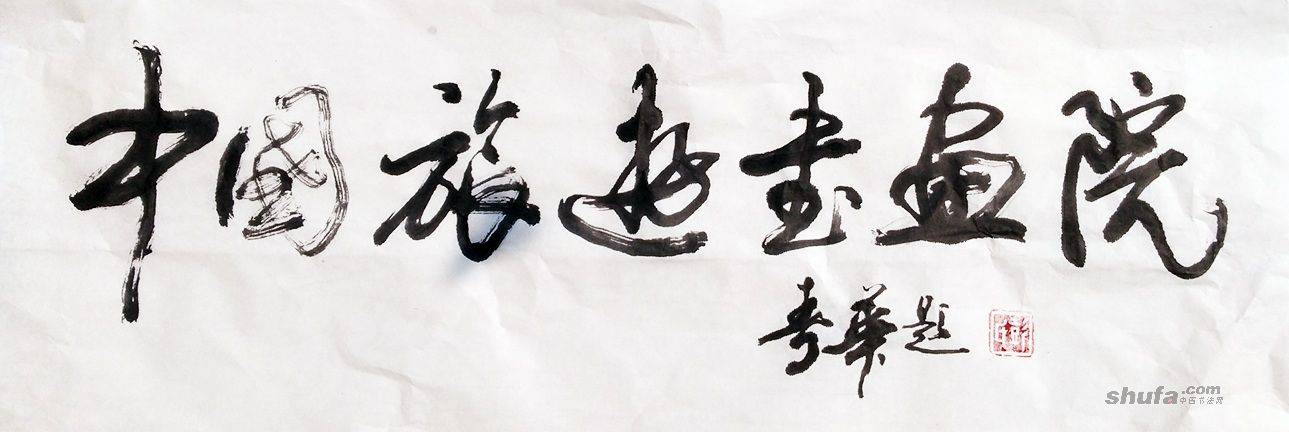 中國旅遊書畫院
壽華題
shufa.com
中国书法网